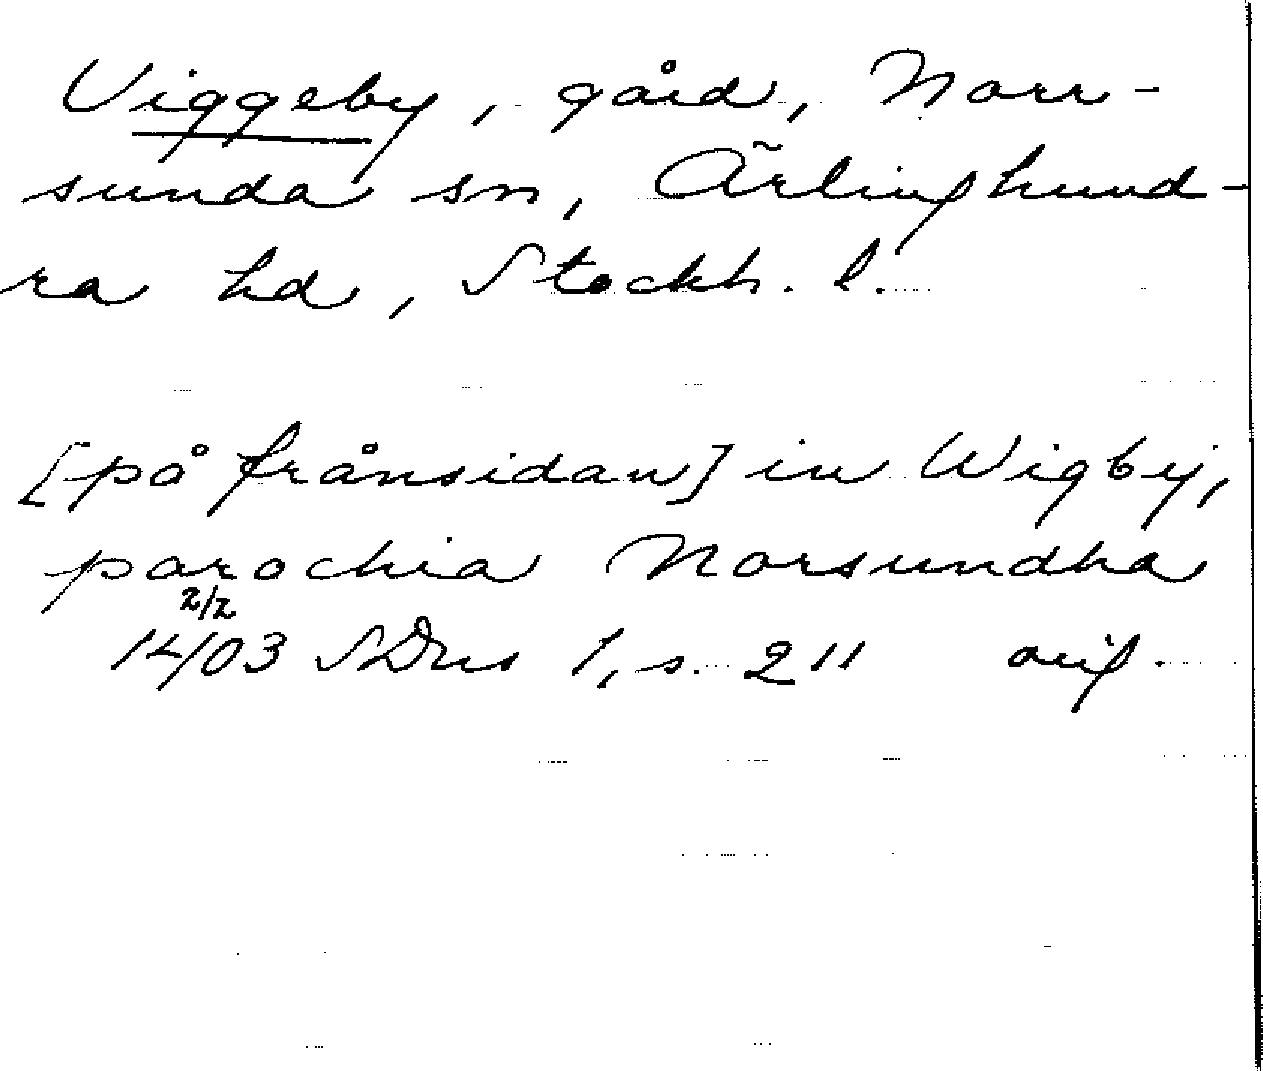 Viggeby, gård, Norr-
sunda sn, Ärlinghund-
ra hd, Stockh. l.
[på frånsidan] in Wigby,
parochia Norsundha
2/2
1403 SDns 1, s. 211 orig.